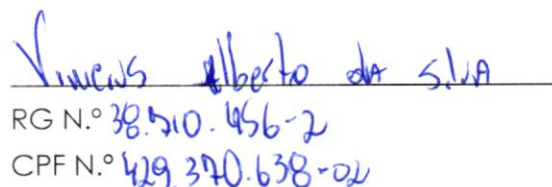 Vinicius Alberto da Silva
RG N.º 38.510.456-2
CPF N.º 429.370.638-02